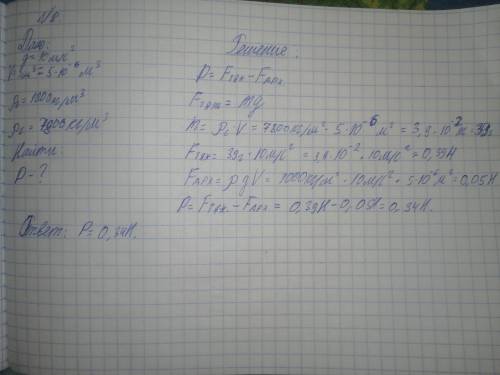 N8
Дано:
g=10м/с²
V=5·10⁻⁶м³
ρ=1000кг/м³
ρс=7800кг/м³
Найти:
P-?
Решение:
P=Fтяж-Fарх
Fтяж=mg
m=ρсV=7800кг/м³·5·10⁻⁶м³=3,9·10⁻²
Fтяж=39г·10м/с²=3,9·10⁻²·10м/с²=0,39Н
Fарх=ρgV=1000кг/м³·10м/с²·5·10⁻⁶м³=0,05Н
P=Fтяж-Fарх=0,39Н-0,05Н=0,34Н.
Ответ: P=0,34Н.